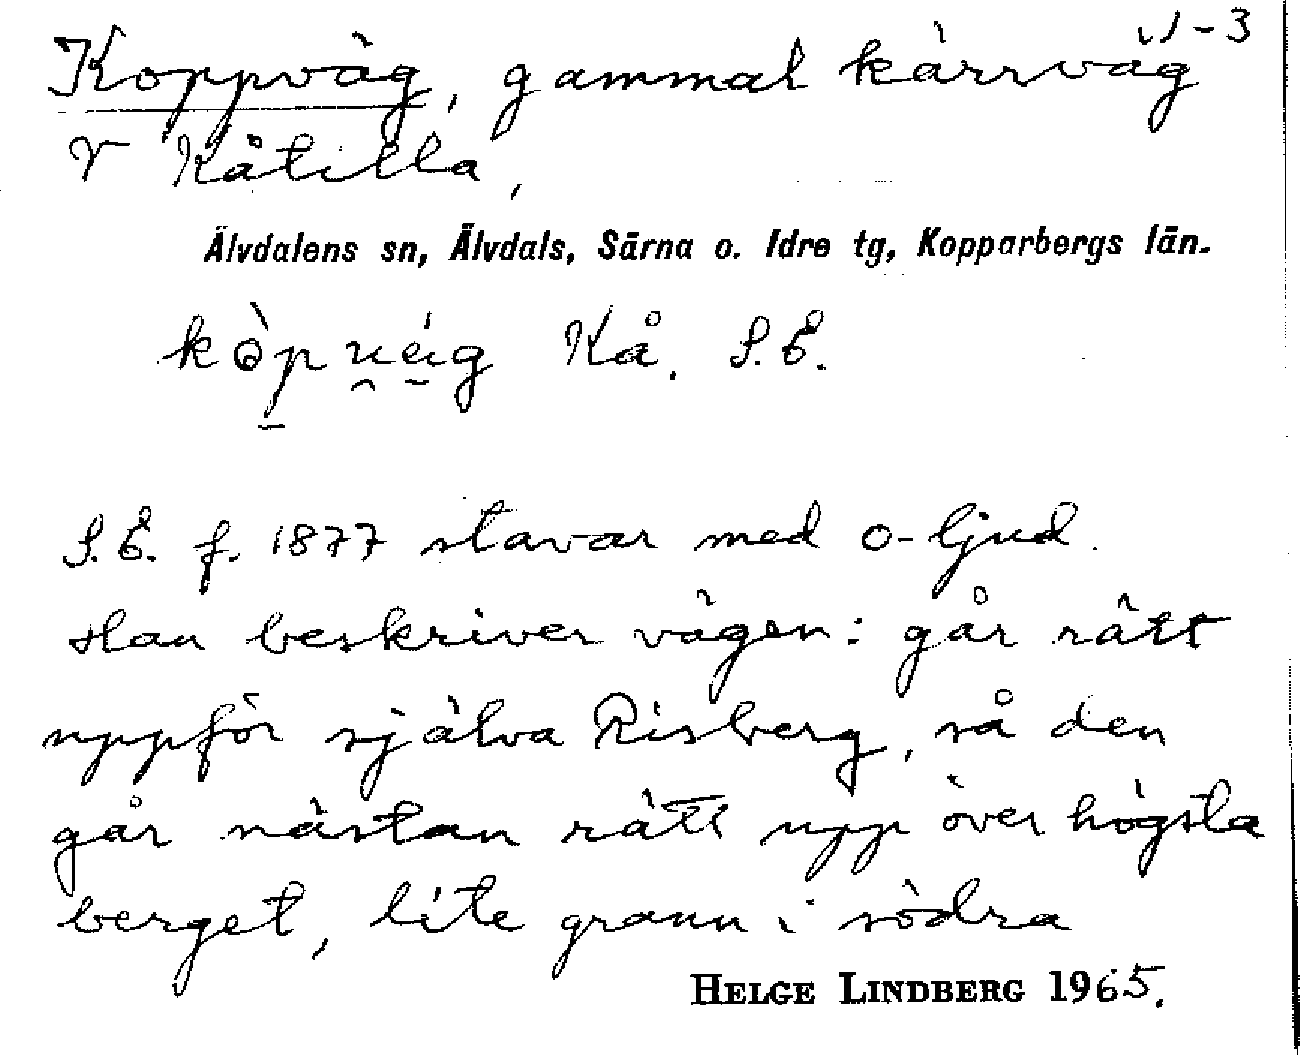 1-3
Koppväg, gammal kärrväg
V Kåtilla,
Älvdalens sn, Älvdals, Särna o. Idre tg, Kopparbergs län.
Kå. S.E.
S.E. f. 1877 stavar med o-ljud.
Han beskriver vägen: går rätt
uppför själva Risberg, så den
går nästan rätt upp över högsta
berget, lite grann i södra
HELGE LINDBERG 1965.